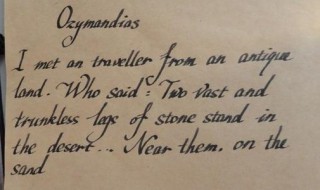 Ozymandias
I met an traveller from an antique
land. Who said: Two vast and
trunkless legs of stone stand in
the desert... Near them. on the
sand